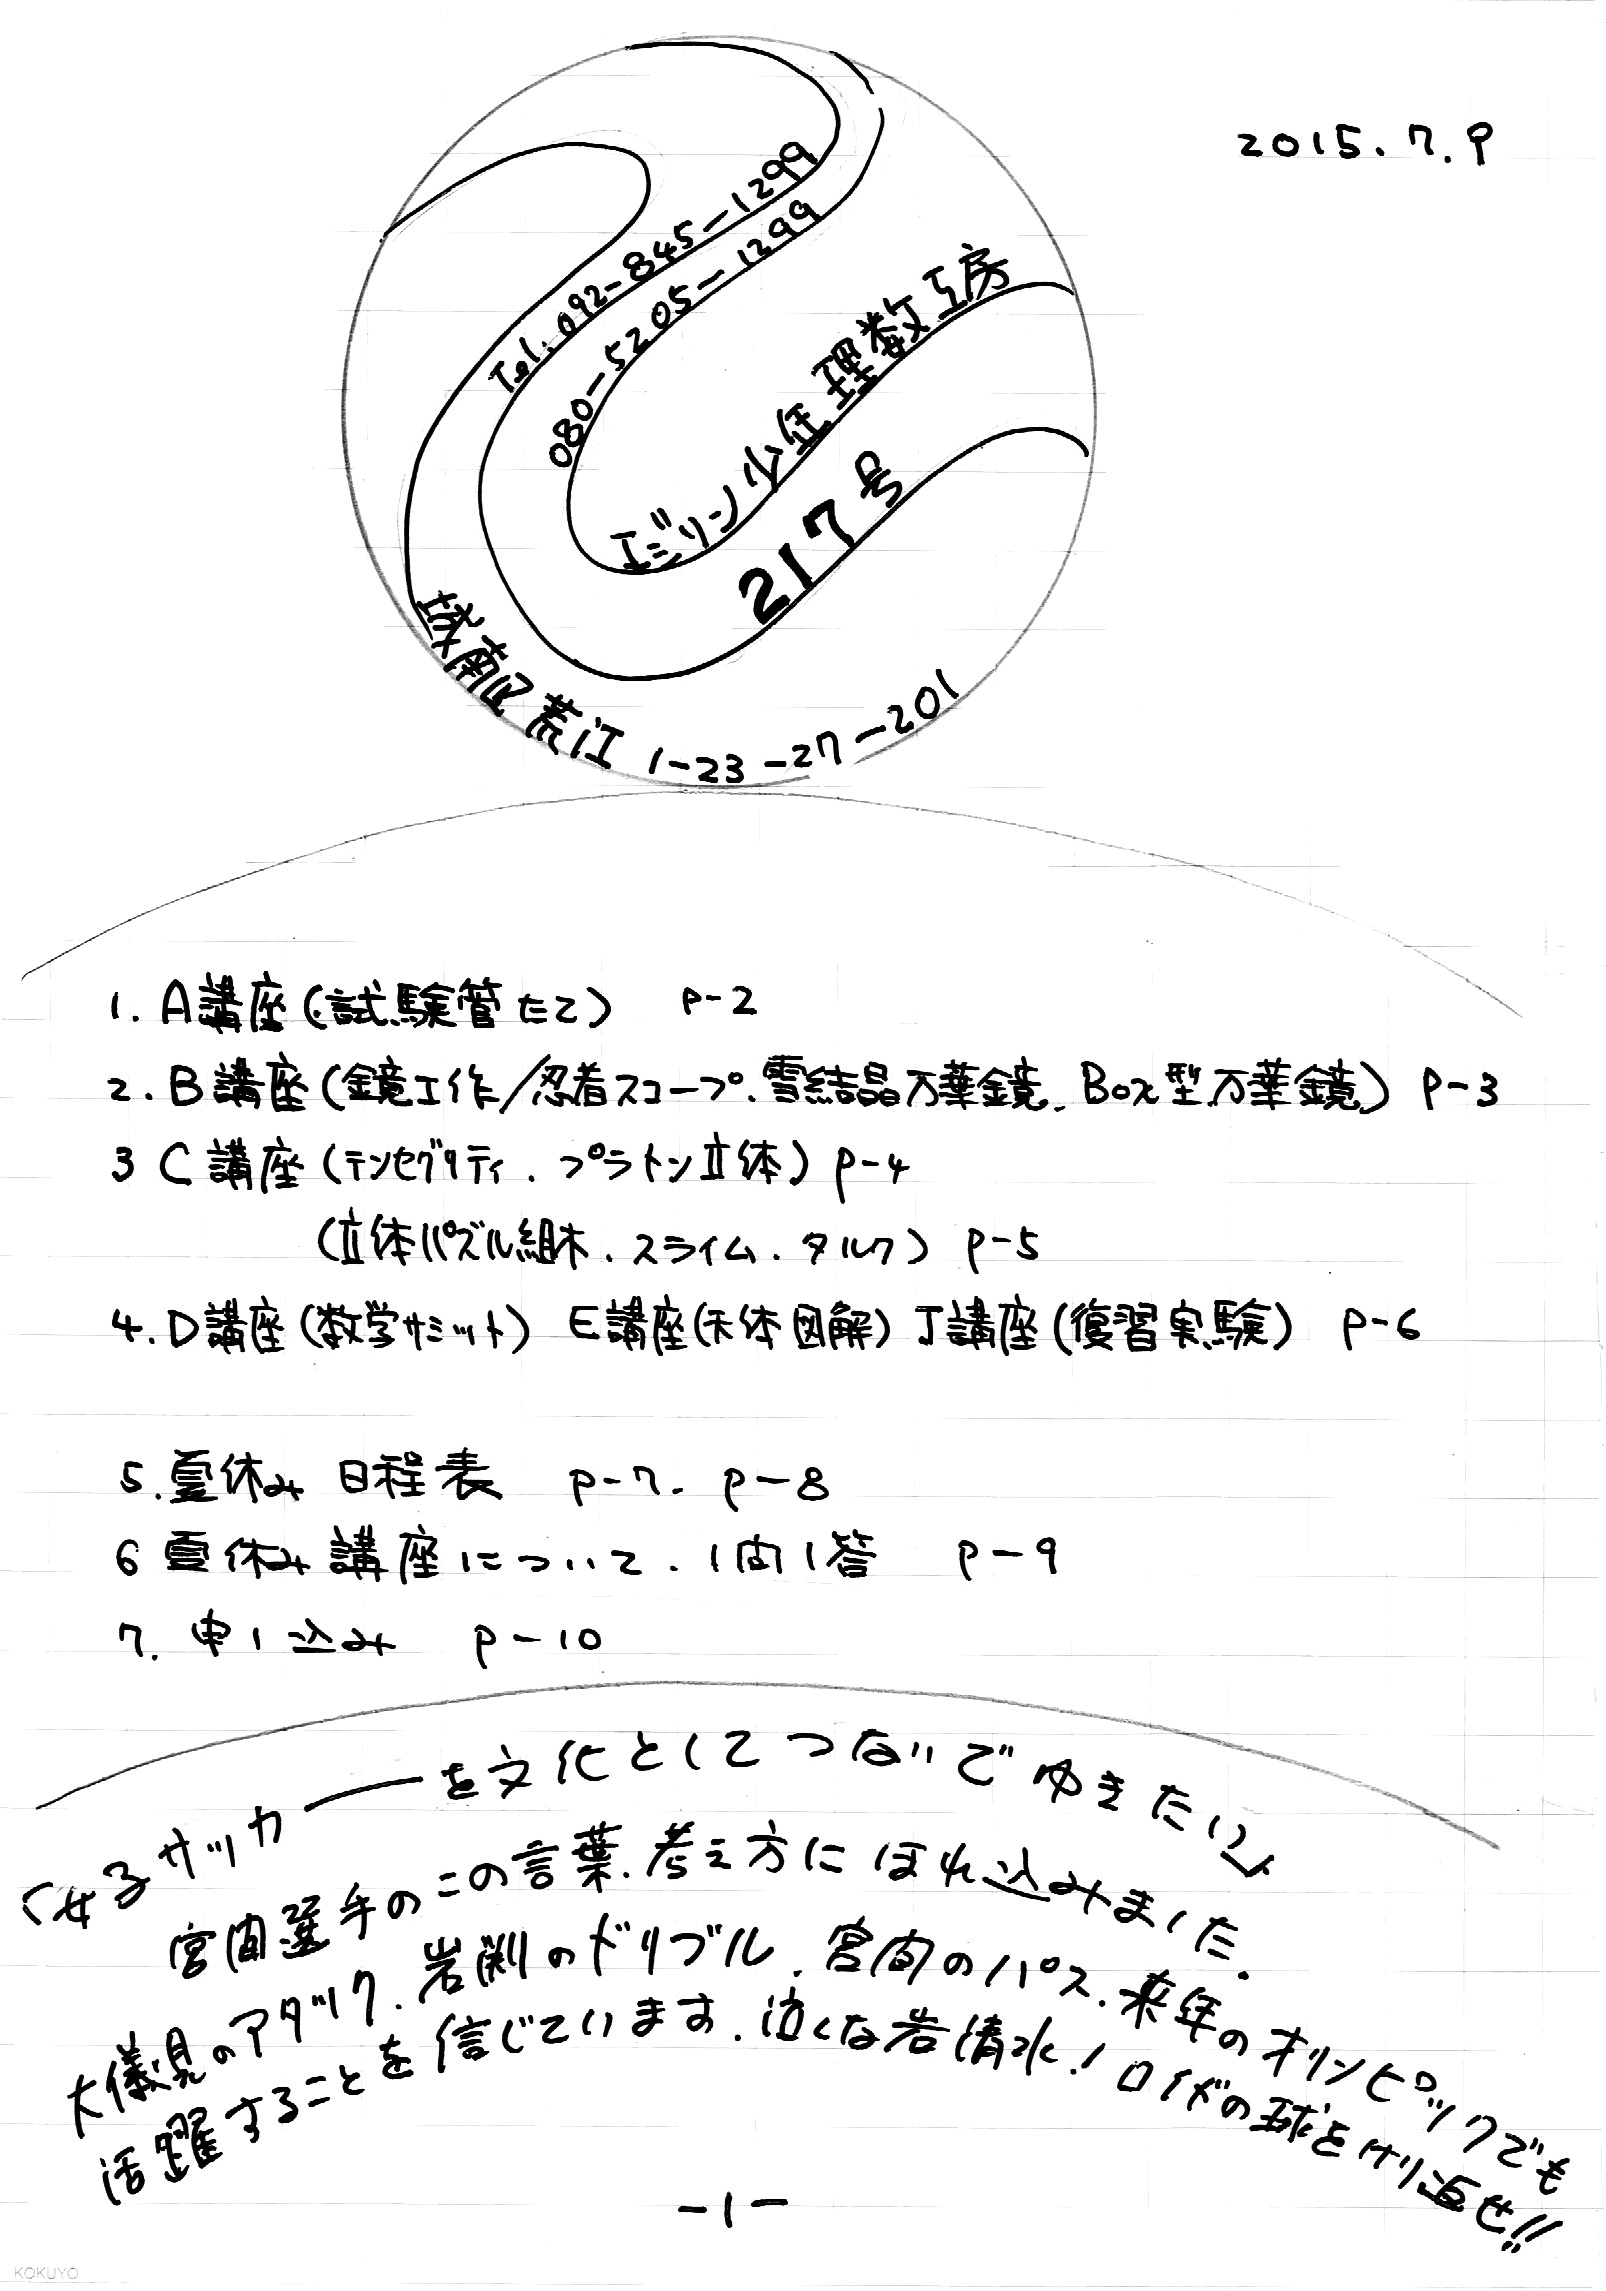 2015.7.9
Tel:092-845-1299
080-5205-1299
エジソン少年理数工房
217号
城南区荒江 1-23-27-201
1. A講座(試験管たて) P-2
2. B講座(鏡工作/忍者スコープ.雪結晶万華鏡.Box型万華鏡) P-3
3 C講座(テンセグリティ.プラトン立体) P-4
(立体パズル組木.スライム.タルク) P-5
4. D講座(数学サミット) E講座(天体図解) J講座(復習実験) P-6
5. 夏休み 日程表 P-7. P-8
6 夏休み講座について.1問1答 P-9
7. 申し込み P-10
「女子サッカーを文化としてつないでゆきたい」
宮間選手のこの言葉.考え方にほれ込みました.
大儀見のアタック.岩渕のドリブル.宮間のパス.来年のオリンピックでも
活躍することを信じています.泣くな岩清水!ロイドの球をけり返せ!!
-1-
KOKUYO